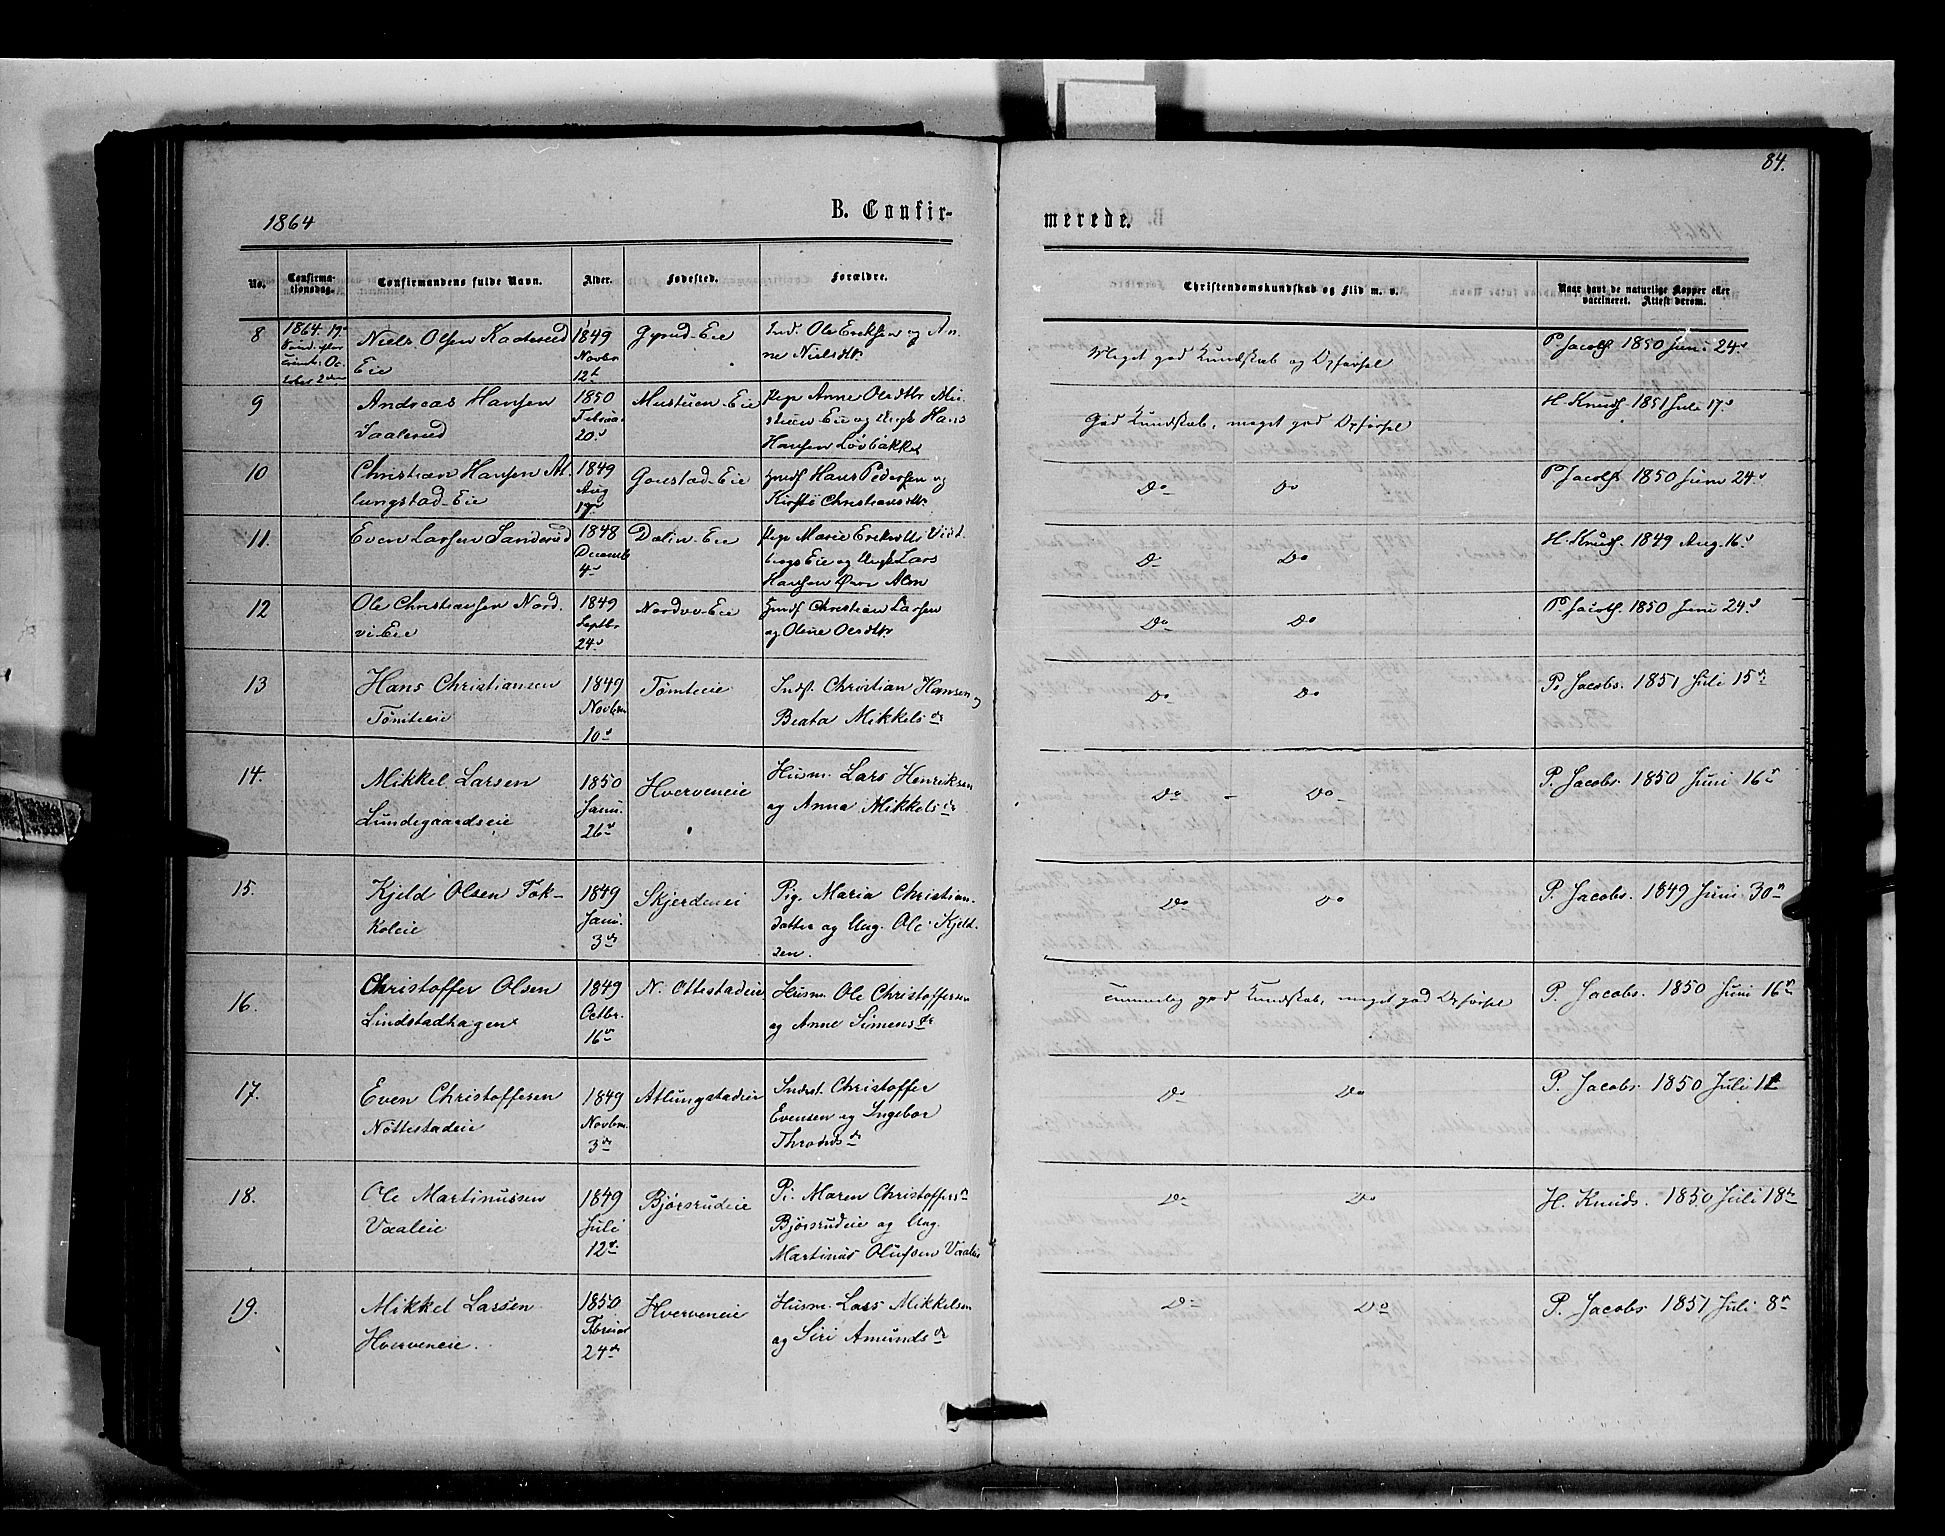 84.
1864
B. Confir-
merede.
No.
Confirma-
tionsdag.
Confirmandens fulde Navn.
Alder.
Fødested.
Forældre.
Christendomskundskab og Flid m. v.
Naar havt de naturlige Kopper eller
vaccineret. Attest derom.
8
1864. 19
October 2den
Niels Olsen
Eie
1849
Novbr
12t
Gyrud-Eie
Ind. Ole Eriksen og An-
ne Nielsdtr
Meget god Kundskab og Opførsel
P. Jacobs. 1850 Juni 24.
9
Andreas Hansen
Saalerud
1850
Februar
20
Mustuen-Eie
Pige Anne Olsdtr Mu-
stuen Eie og Ungk Hans
Hansen Løvbakke
God Kundskab, meget god Opførsel
H. Knuds. 1851 Juli 17.
10
Christian Hansen At-
lungstad-Eie
1849
Aug
17
Gonstad-Eie
Inds. Hans Pedersen og
Kirsti Christiansdtr
Do
Do
P. Jacobs. 1850 Juni 24.
11.
Even Larsen Sanderud
1848
Decemb
4
Dalin-Eie
Pige Marie Eriksdtr
bergs Eie og Ungk Lars
Hansen Øvre Alm
Do
Do
H. Knuds. 1849 Aug. 16
12
Ole Christiansen Nord-
vi-Eie
1849
Septbr
24
Nordvi-Eie
Inds. Christian Larsen
og Oline Olsdtr
Do
Do
P. Jacobs. 1850 Juni 24.
13
Hans Christiansen
Tomteeie
1849
Novbr
10
Tomteeie
Indst. Christian Hansen og
Beata Mikkels dr
Do
Do
P. Jacobs. 1851 Juli 15
14.
Mikkel Larsen
Lundegaardseie
1850
Janu.
26
Hverveneie
Husm. Lars Henriksen
og Anna Mikkels dr
Do
-
Do
P. Jacobs. 1850 Juni 16
15
Kjeld Olsen Fok-
koleie
1849
Janu.
3
Skjerdenei
Pig. Maria Christian-
datter og Ung. Ole Kjeld-
sen.
Do
Do
P. Jacobs. 1849 Juni 30
16.
Christoffer Olsen
Lindstadhagen
1849
Octbr.
16
N. Ottestadeie
Husm. Ole Christoffersen
og Anne Simens dr
Temmelig god Kundskab, meget god Opførsel
P. Jacobs. 1850 Juni 16
17.
Even Christoffersen
Nottestadeie
1849
Novbr.
3
Atlungstadeie
Inderst. Christoffer
Evensen og Ingebor
Throends dr
Do
Do
P. Jacobs. 1850 Juli
18.
Ole Martinussen
Vaaleie
1849
Juli
12
Bjørsrudeie
Pi. Maren Christoffers dr
Bjørsrudeie og Ung.
Martinus Olufsen Vaaleie
Do
Do
H. Knuds. 1850 Juli 18
19.
Mikkel Larsen
Hverveneie.
1850
Februar
24
Hverveneie
Husm. Lars Mikkelsen
og Siri Amunds dr
Do
Do
P. Jacobs. 1851 Juli 8